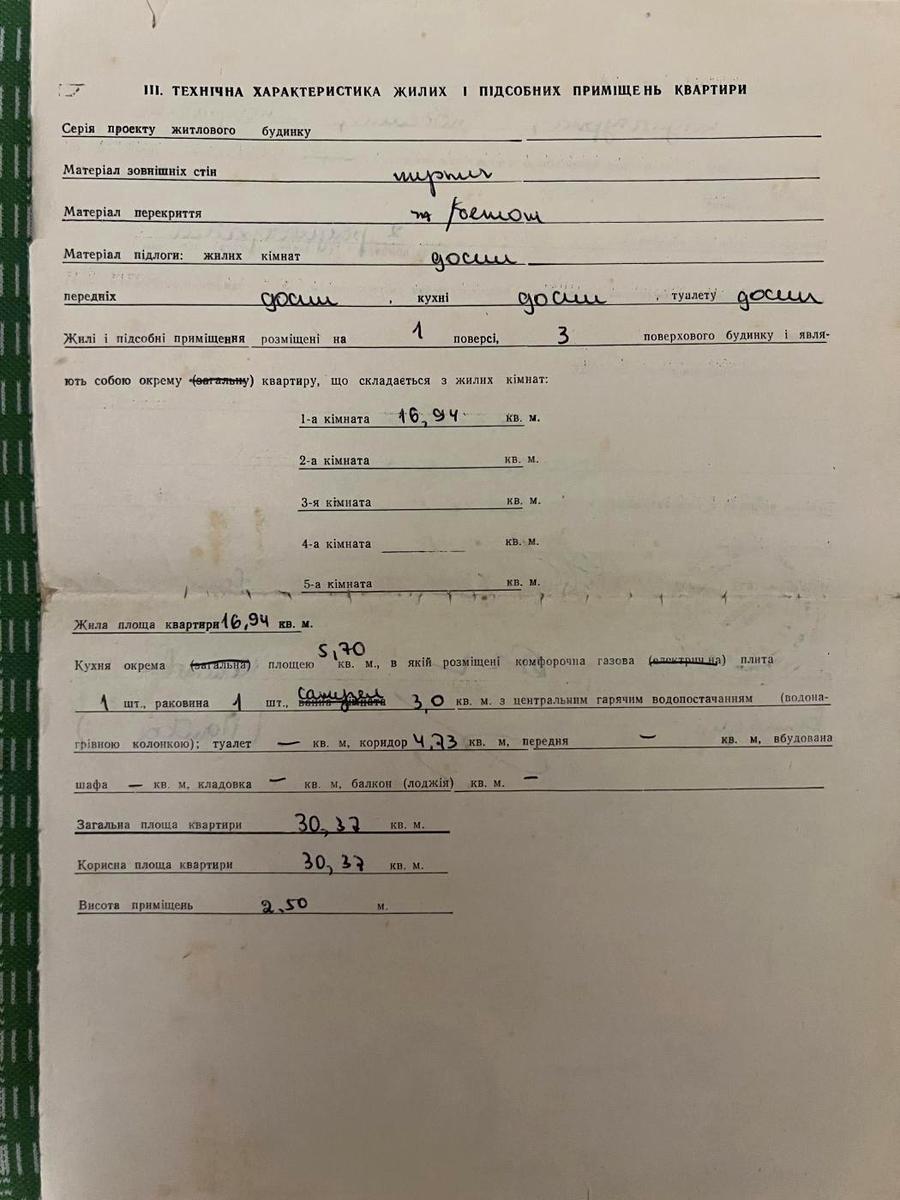 III. ТЕХНІЧНА ХАРАКТЕРИСТИКА ЖИЛИХ І ПІДСОБНИХ ПРИМІЩЕНЬ КВАРТИРИ
Серія проекту житлового будинку
Матеріал зовнішніх стін
Матеріал перекриття бетон
Матеріал підлоги: жилих кімнат дошки
передніх дошки , кухні дошки , туалету дошки
Жилі і підсобні приміщення розміщені на 1 поверсі, 3 поверхового будинку і явля-
ють собою окрему (загальну) квартиру, що складається з жилих кімнат:
1-а кімната 16,94 кв. м.
2-а кімната кв. м.
3-я кімната кв. м.
4-а кімната кв. м.
5-а кімната кв. м.
Жила площа квартири 16,94 кв. м.
Кухня окрема (загальна) площею 5,70 кв. м., в якій розміщені комфорочна газова (електрична) плита
1 шт., раковина 1 шт., санузел ванна кімната 3,0 кв. м. з центральним гарячим водопостачанням (водона-
грівною колонкою); туалет — кв. м, коридор 4,73 кв. м, передня — кв. м, вбудована
шафа — кв. м, кладовка — кв. м, балкон (лоджія) кв. м. —
Загальна площа квартири 30,37 кв. м.
Корисна площа квартири 30,37 кв. м.
Висота приміщень 2.50 м.